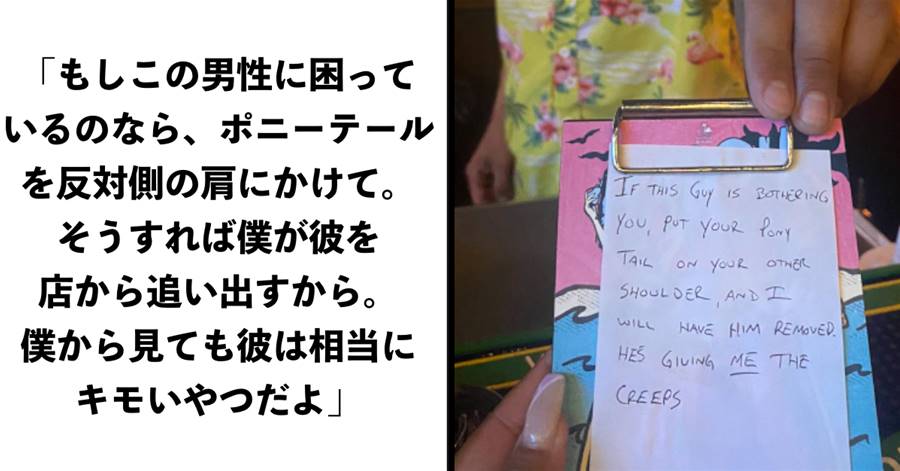 「もしこの男性に困って
いるのなら、ポニーテール
を反対側の肩にかけて。
そうすれば僕が彼を
店から追い出すから。
僕から見ても彼は相当に
キモいやつだよ」
IF THIS GUY IS BOTHERING
YOU, PUT YOUR PONY
TAIL ON YOUR OTHER
SHOULDER, AND I
WILL HAVE HIM REMOVED.
HE'S GIVING ME THE
CREEPS